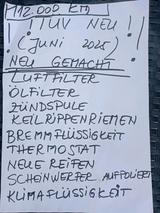 112.000 KM
! ! TÜV NEU ! !
(JUNI 2025)
NEU GEMACHT
LUFTFILTER
ÖLFILTER
ZÜNDSPULE
KEILRIPPENRIEMEN
BREMMFLÜSSIGKEIT
THERMOSTAT
NEUE REIFEN
SCHEINWERFER AUFPOLIERT
KLIMAFLÜSSIGKEIT